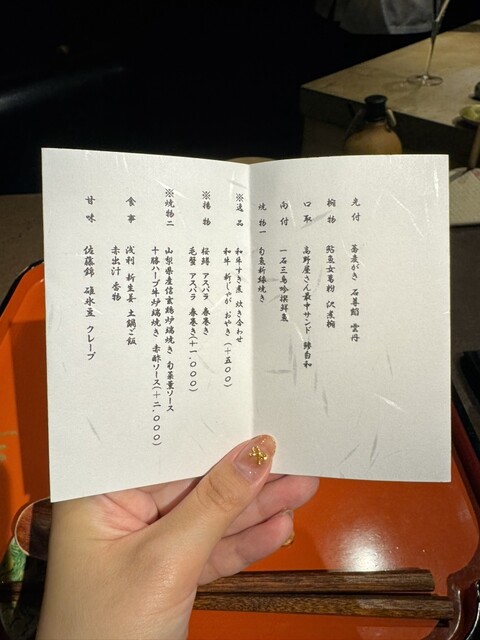 先付 蕎麦がき 石蓴餡 雲丹
椀物 鮎魚女葛粉 沢煮椀
口取 高野屋さん最中サンド 豚白和
向付 一石三鳥吟撰鮮魚
焼物一 旬魚新緑焼き
※逸品 和牛すき煮 炊き合わせ
和牛 新じゃが おやき(+五〇〇)
※揚物 桜鱒 アスパラ 春巻き
毛蟹 アスパラ 春巻き(+一、〇〇〇)
※焼物二 山梨県産信玄鶏炉端焼き 旬菜薫ソース
十勝ハーブ牛炉端焼き 赤酢ソース(+二、〇〇〇)
食事 浅利 新生姜 土鍋ご飯
赤出汁 香物
甘味 佐藤錦 碓氷豆 クレープ